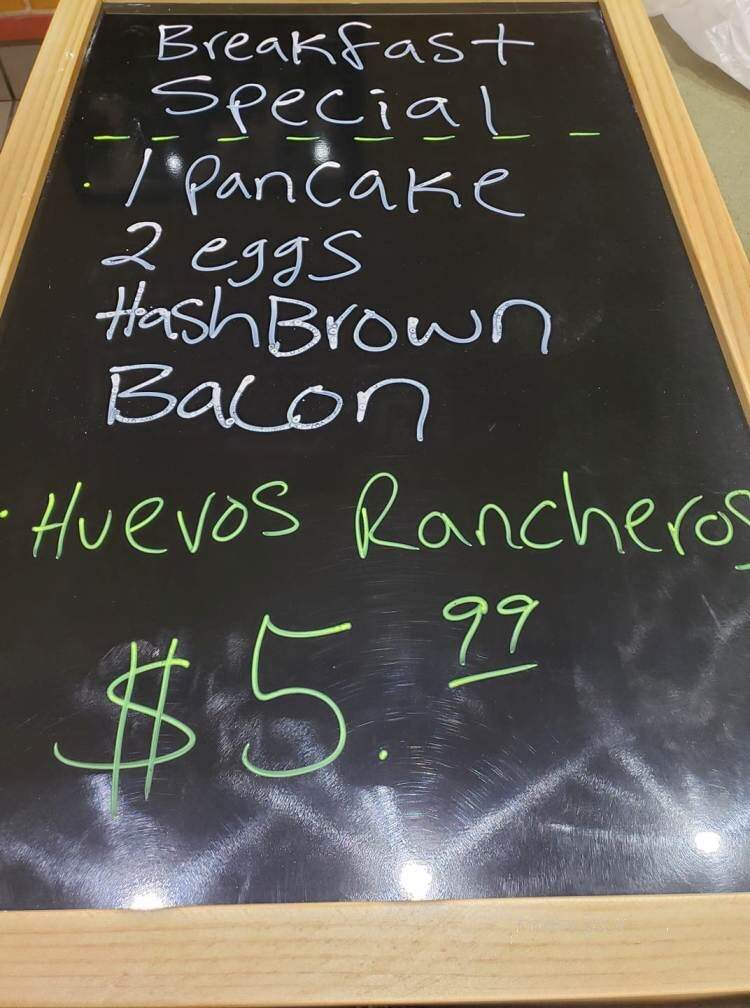 Breakfast
Special
· 1 Pancake
2 eggs
HashBrown
Bacon
· Huevos Rancheros
$5.99